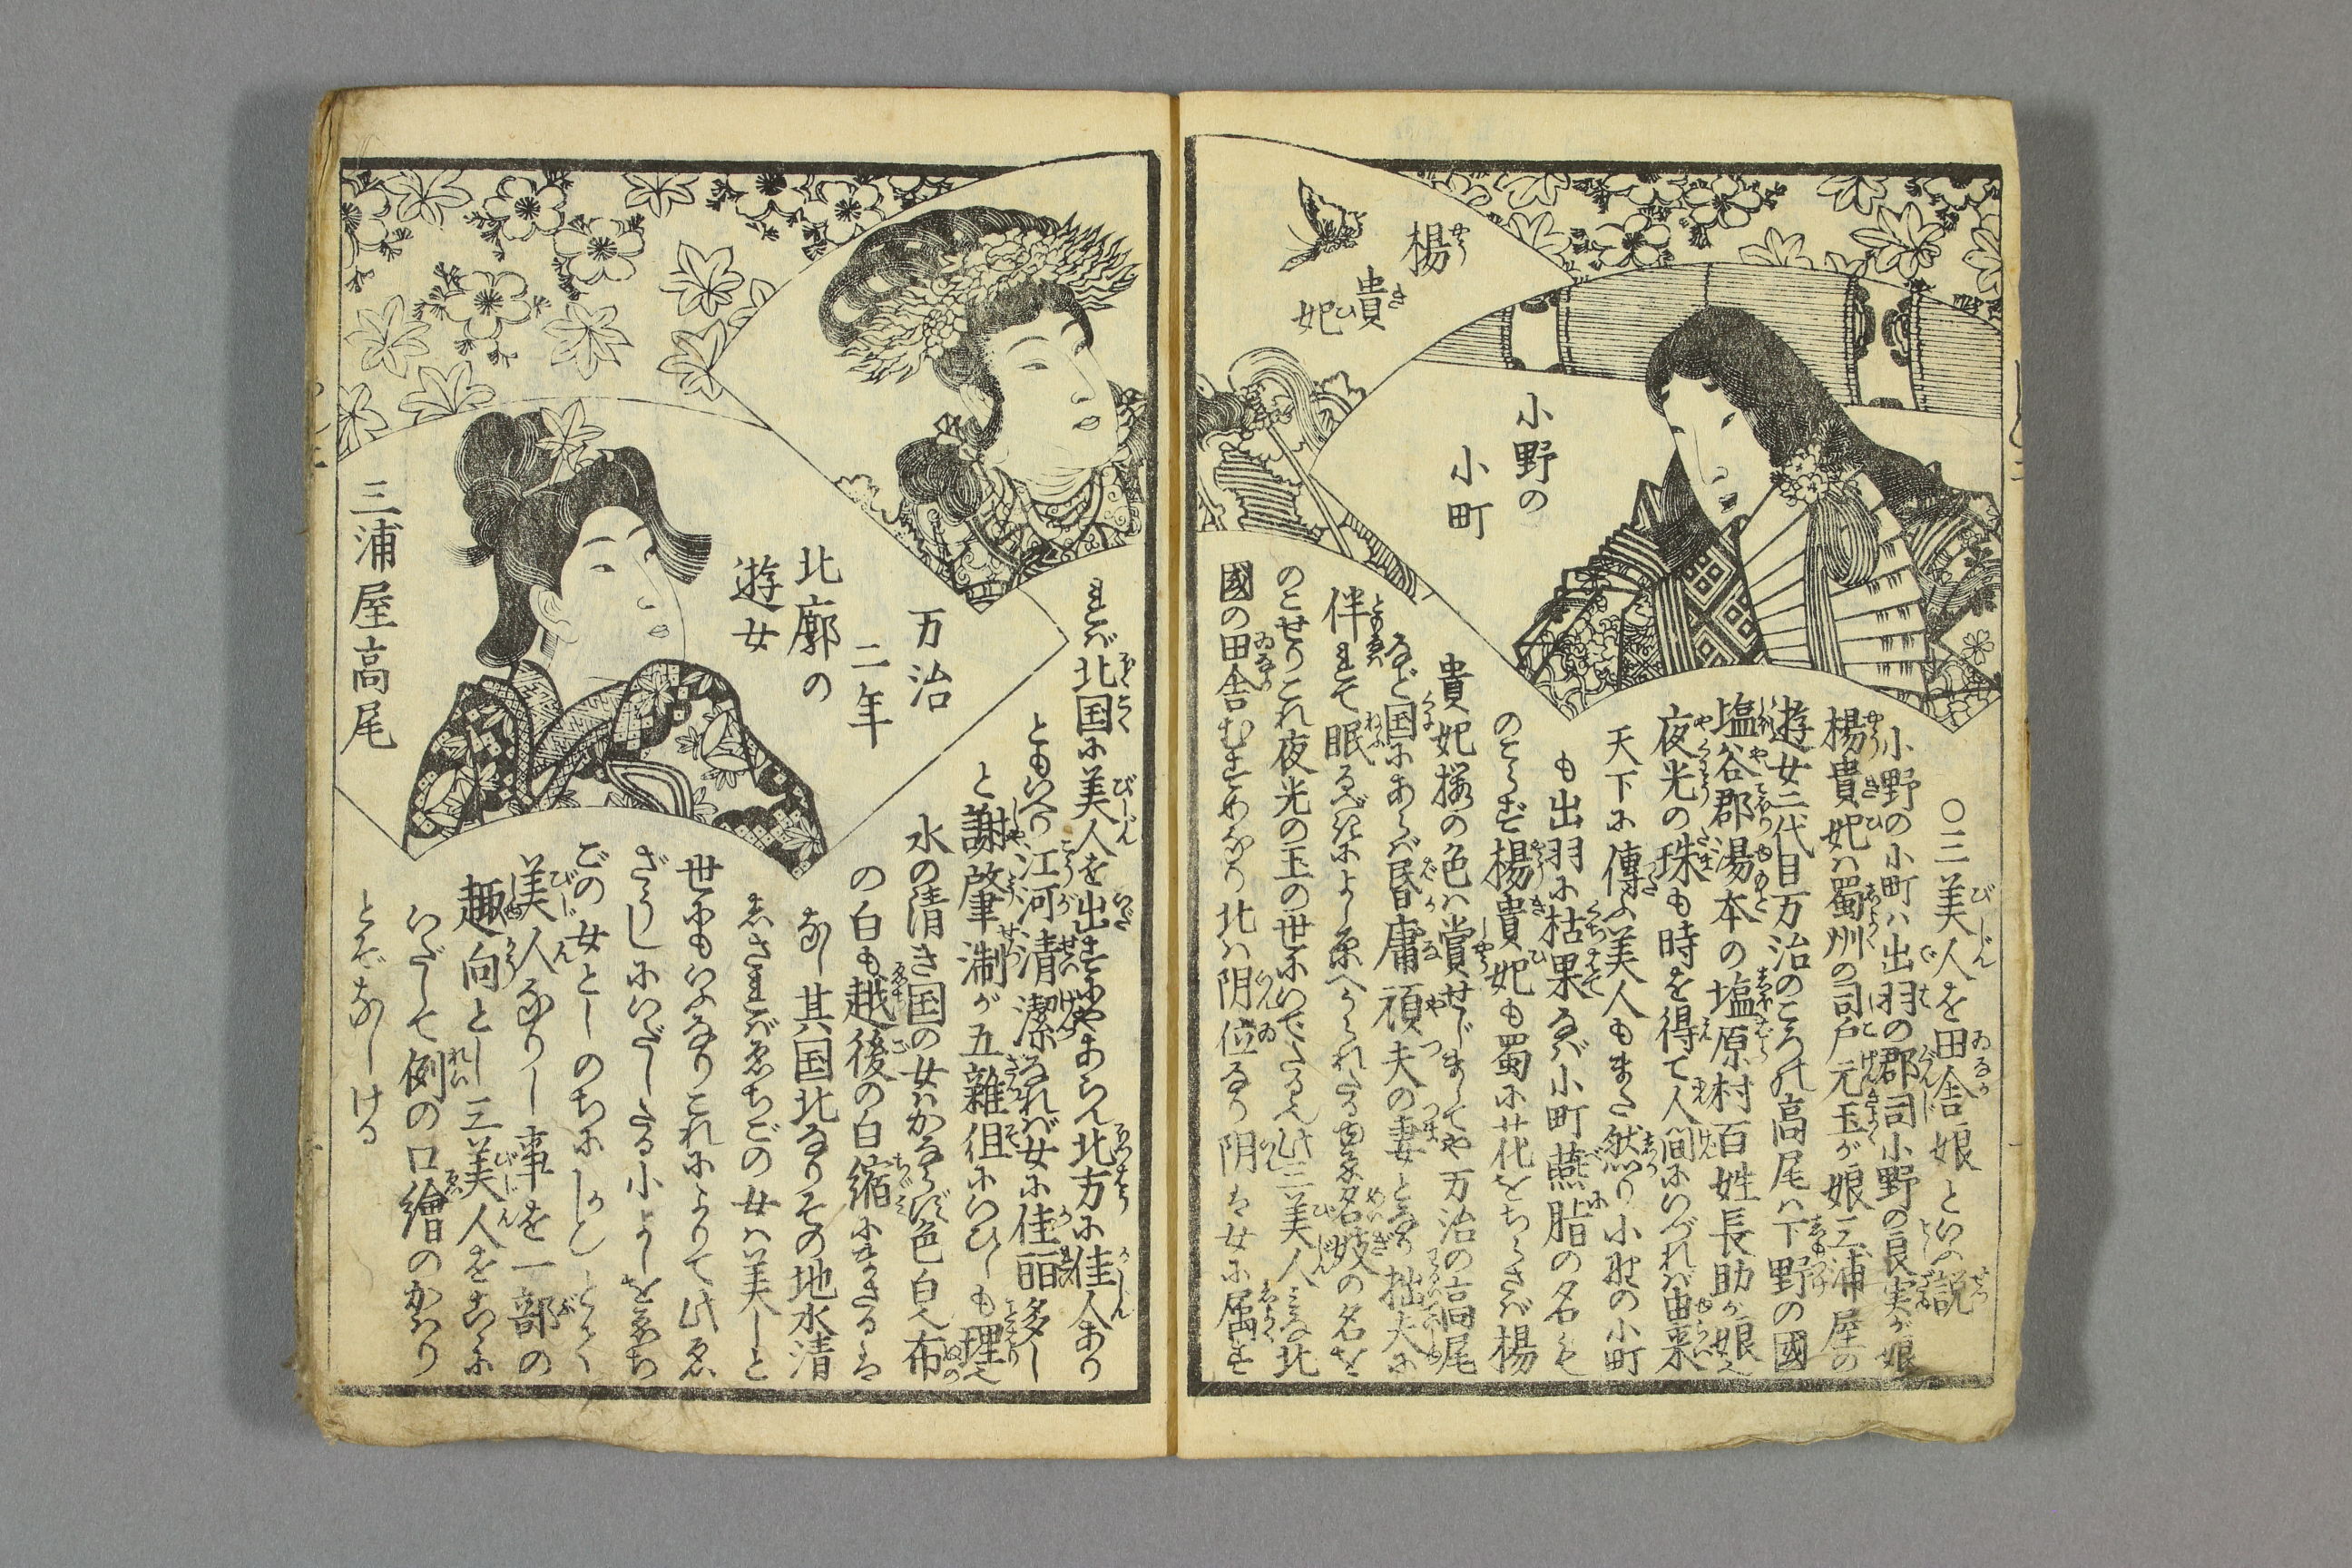 楊
貴
妃
小野の
小町
〇三美人を田舎娘といふ説
小野の小町ハ出羽の郡司小野の良実が娘
楊貴妃ハ蜀州の司戸元玉が娘三浦屋の
遊女二代目万治のころの高尾ハ下野の國
塩谷郡湯本の塩原村百姓長助が娘也
夜光の珠も時を得て人間にいづれバ由来
天下に傳ふ美人もまた然り小野の小町
も出羽に枯果なバ小町臙脂の名もも
のこらず楊貴妃も蜀に花をちらさバ楊
貴妃櫻の色ハ賞せじましてや万治の高尾
など国にあらバ昏庸頑夫の妻となり拙夫に
伴れて眠るべきによし原へうられたる
名妓の名を
のこせりこれ夜光の玉の世にいでたる也此三美人みな北
國の田舎むすめなり北ハ阴位なり阴は女に属す
れバ北国に美人を出すにやあらん北方に佳人あり
ともいへり江河清潔なれバ女に佳麗多し
と謝肇淛が五雜俎にいひしも理也
水の清き国の女ハかならず色白也布
の白も越後の白縮にまさるは
なし其国北なりその地水清
ゑされバゑちごの女ハ美しと
世にもいふなりこれによりて此ゑ
ざうしにいだしたる小よしをゑち
ごの女としのちに
美人なりし事を一部の
趣向とし三美人をこゝに
いだして例の口繪のかハり
とぞなしける
万治
二年
北廓の
遊女
三浦屋高尾